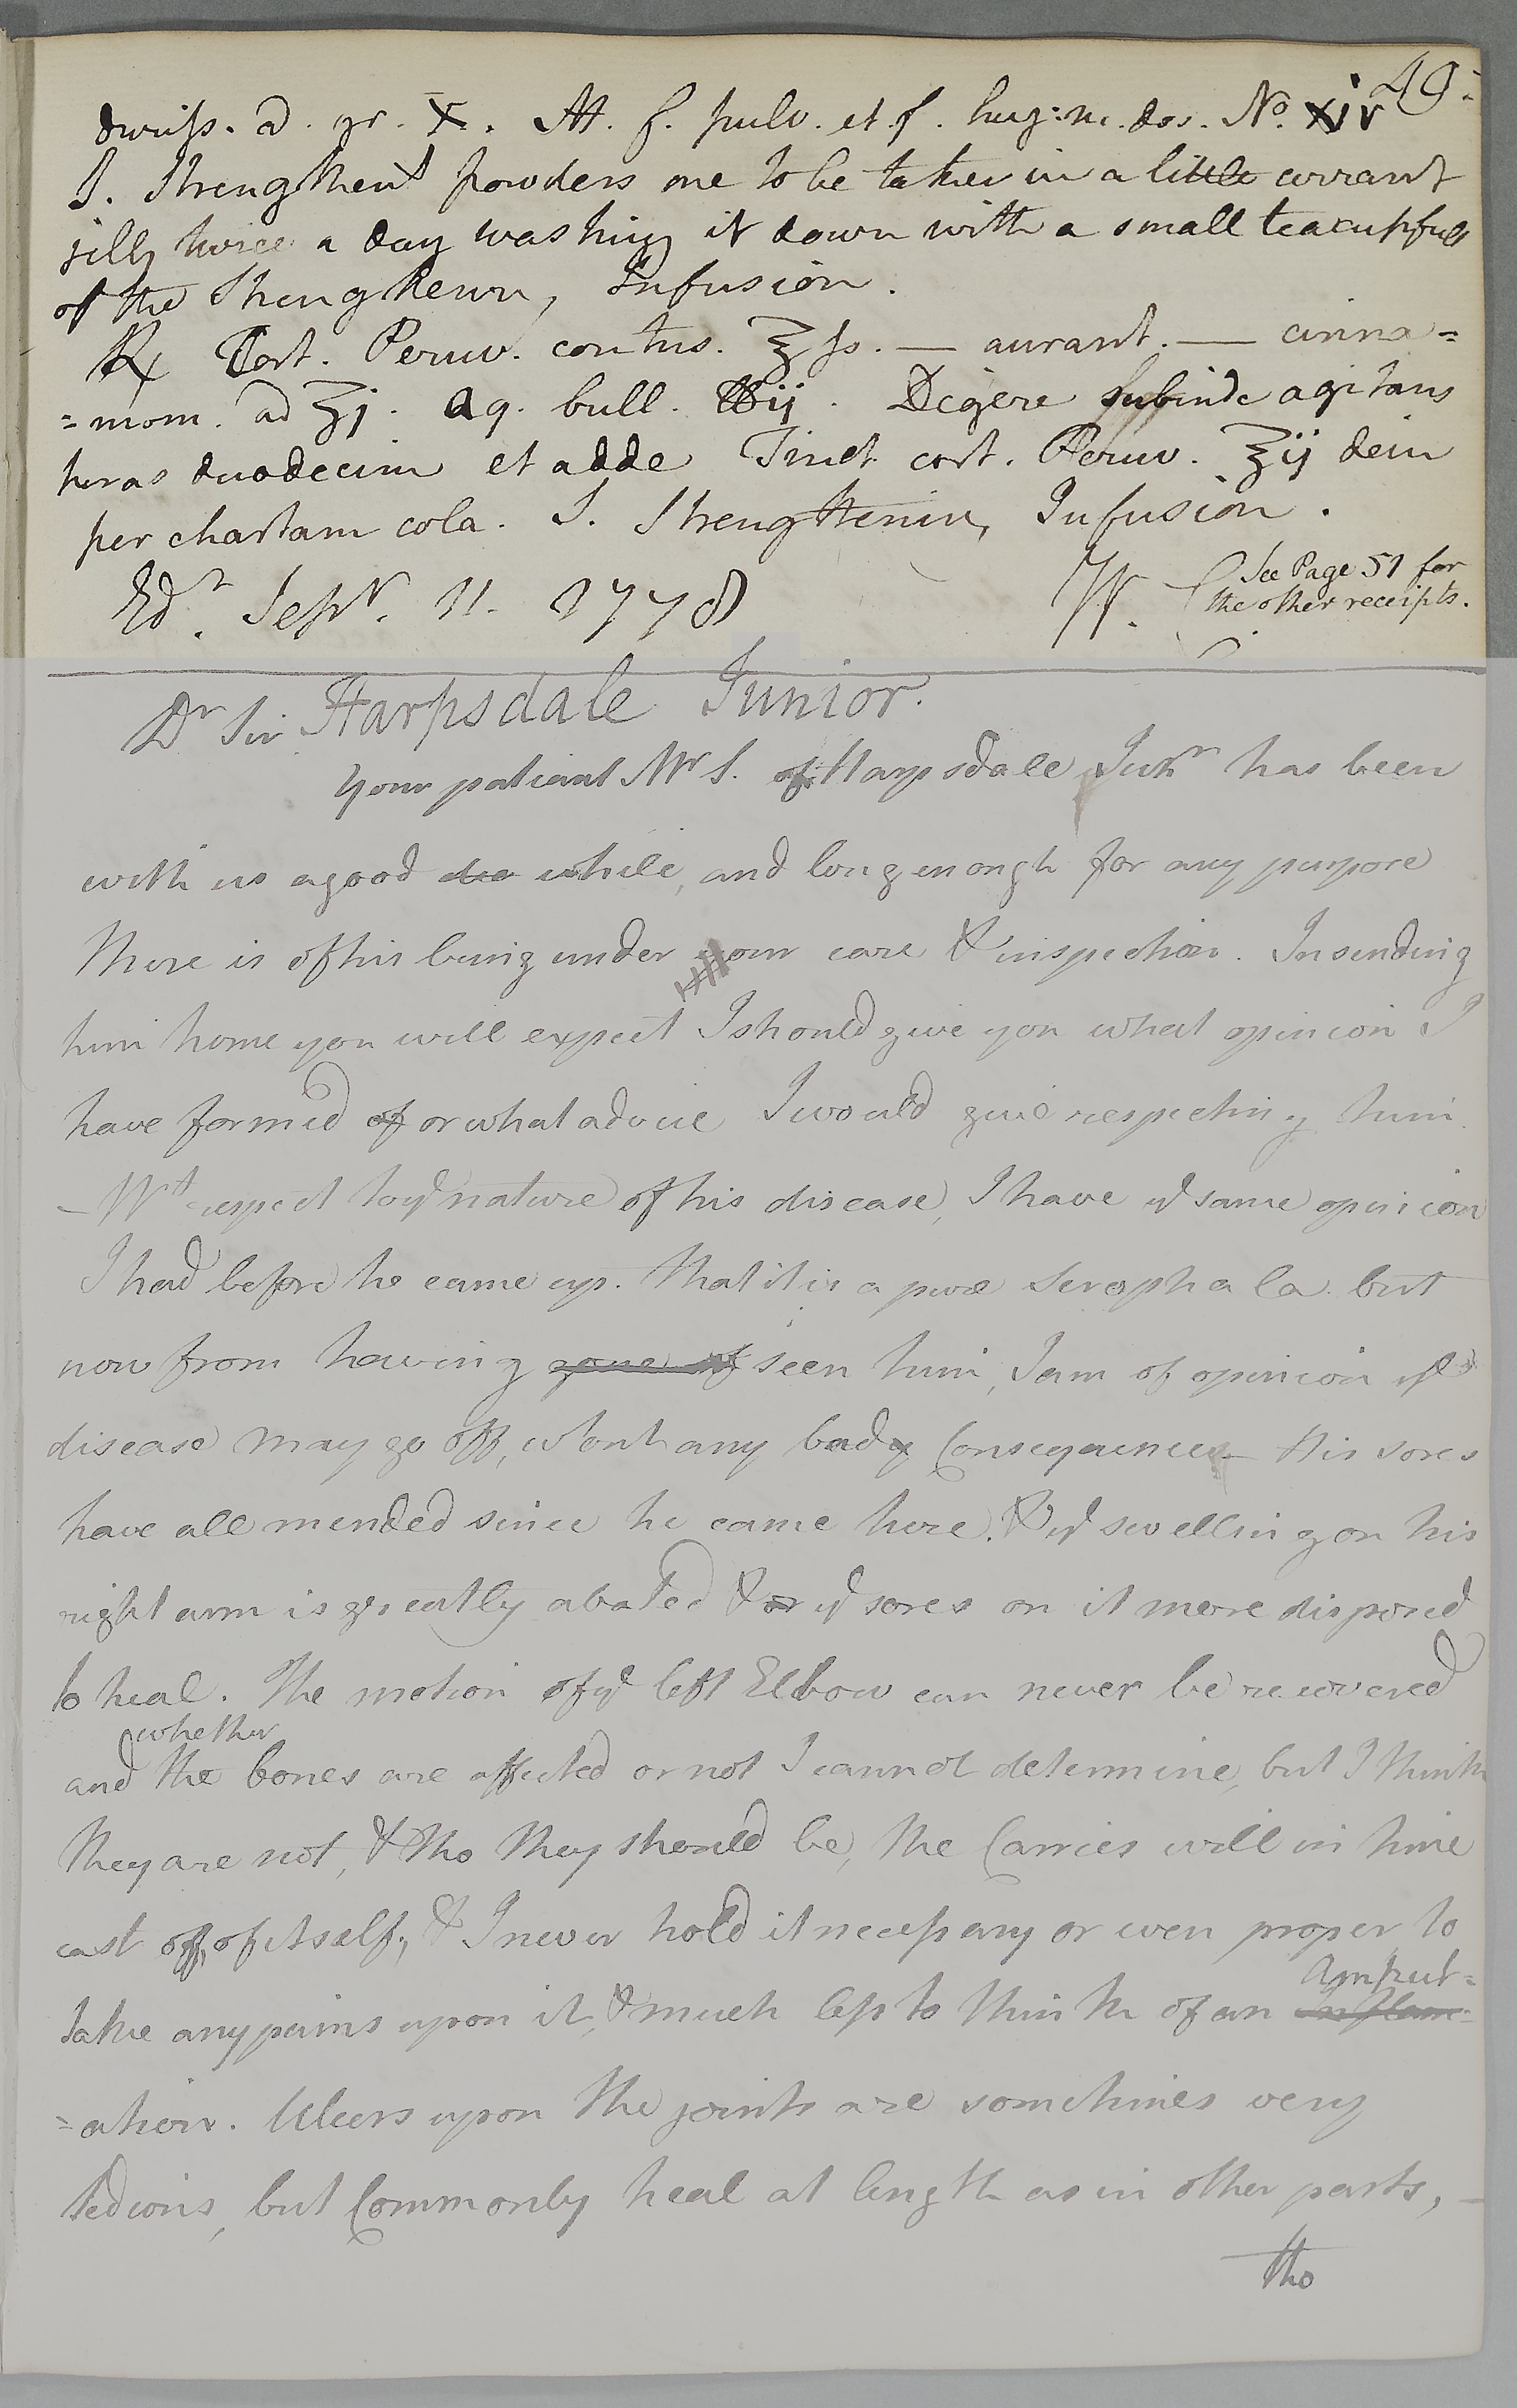 49.
dwiss. a. gr. X. M. f. pulv. et. f. huj: m. dos. No. xiv
S. Strengthen powders one to be taken in a little currant
jelly twice a day washing it down with a small teacupfull
of the Strenghenin, Infusion.
℞ Cort. Peruv. contus. ℥ ſs. — aurant. — cinna=
=mom. ad ʒj. aq. bull. ℔ij. Digere subinde agitans
horas duodecim et adde Tinct cort. Peruv. ℥ij dein
per chartam cola. S. Strengthenin, Infusion.
Edr. Sepr. 11. 1778
See Page 51 for
the other receipts.
Dr Sir Harpsdale Junior.
Your patient Mr S. of Harpsdale Junr has been
with us a good while, and long enough for any purpose
there is of his being under our care & inspection. In sending
him home you will expect I should give you what opinion I
have formed of or what advice I would give respecting him
– Wt respect to ye nature of his disease, I have ye same opinion
I had before he came up. that it is a pure Scrophala. but
now from having seen him, I am of opinion ye
disease may go off, wtout any bad Consequences – His sores
have all mended since he came here. & ye swelling on his
right arm is greatly abated & ye sores on it more disposed
to heal. The motion of ye left Elbow can never be recovered
whether
and the bones are affected or not I cannot determine, but I think
they are not, & tho they should be, the Carries will in time
cast off, of itself, & I never hold it necessary or even proper to
Amput=
take any pains upon it, & much less to think of an
=ation. Ulcers upon the joints are sometimes very
tedious, but Commonly heal at length as in other parts, –
tho